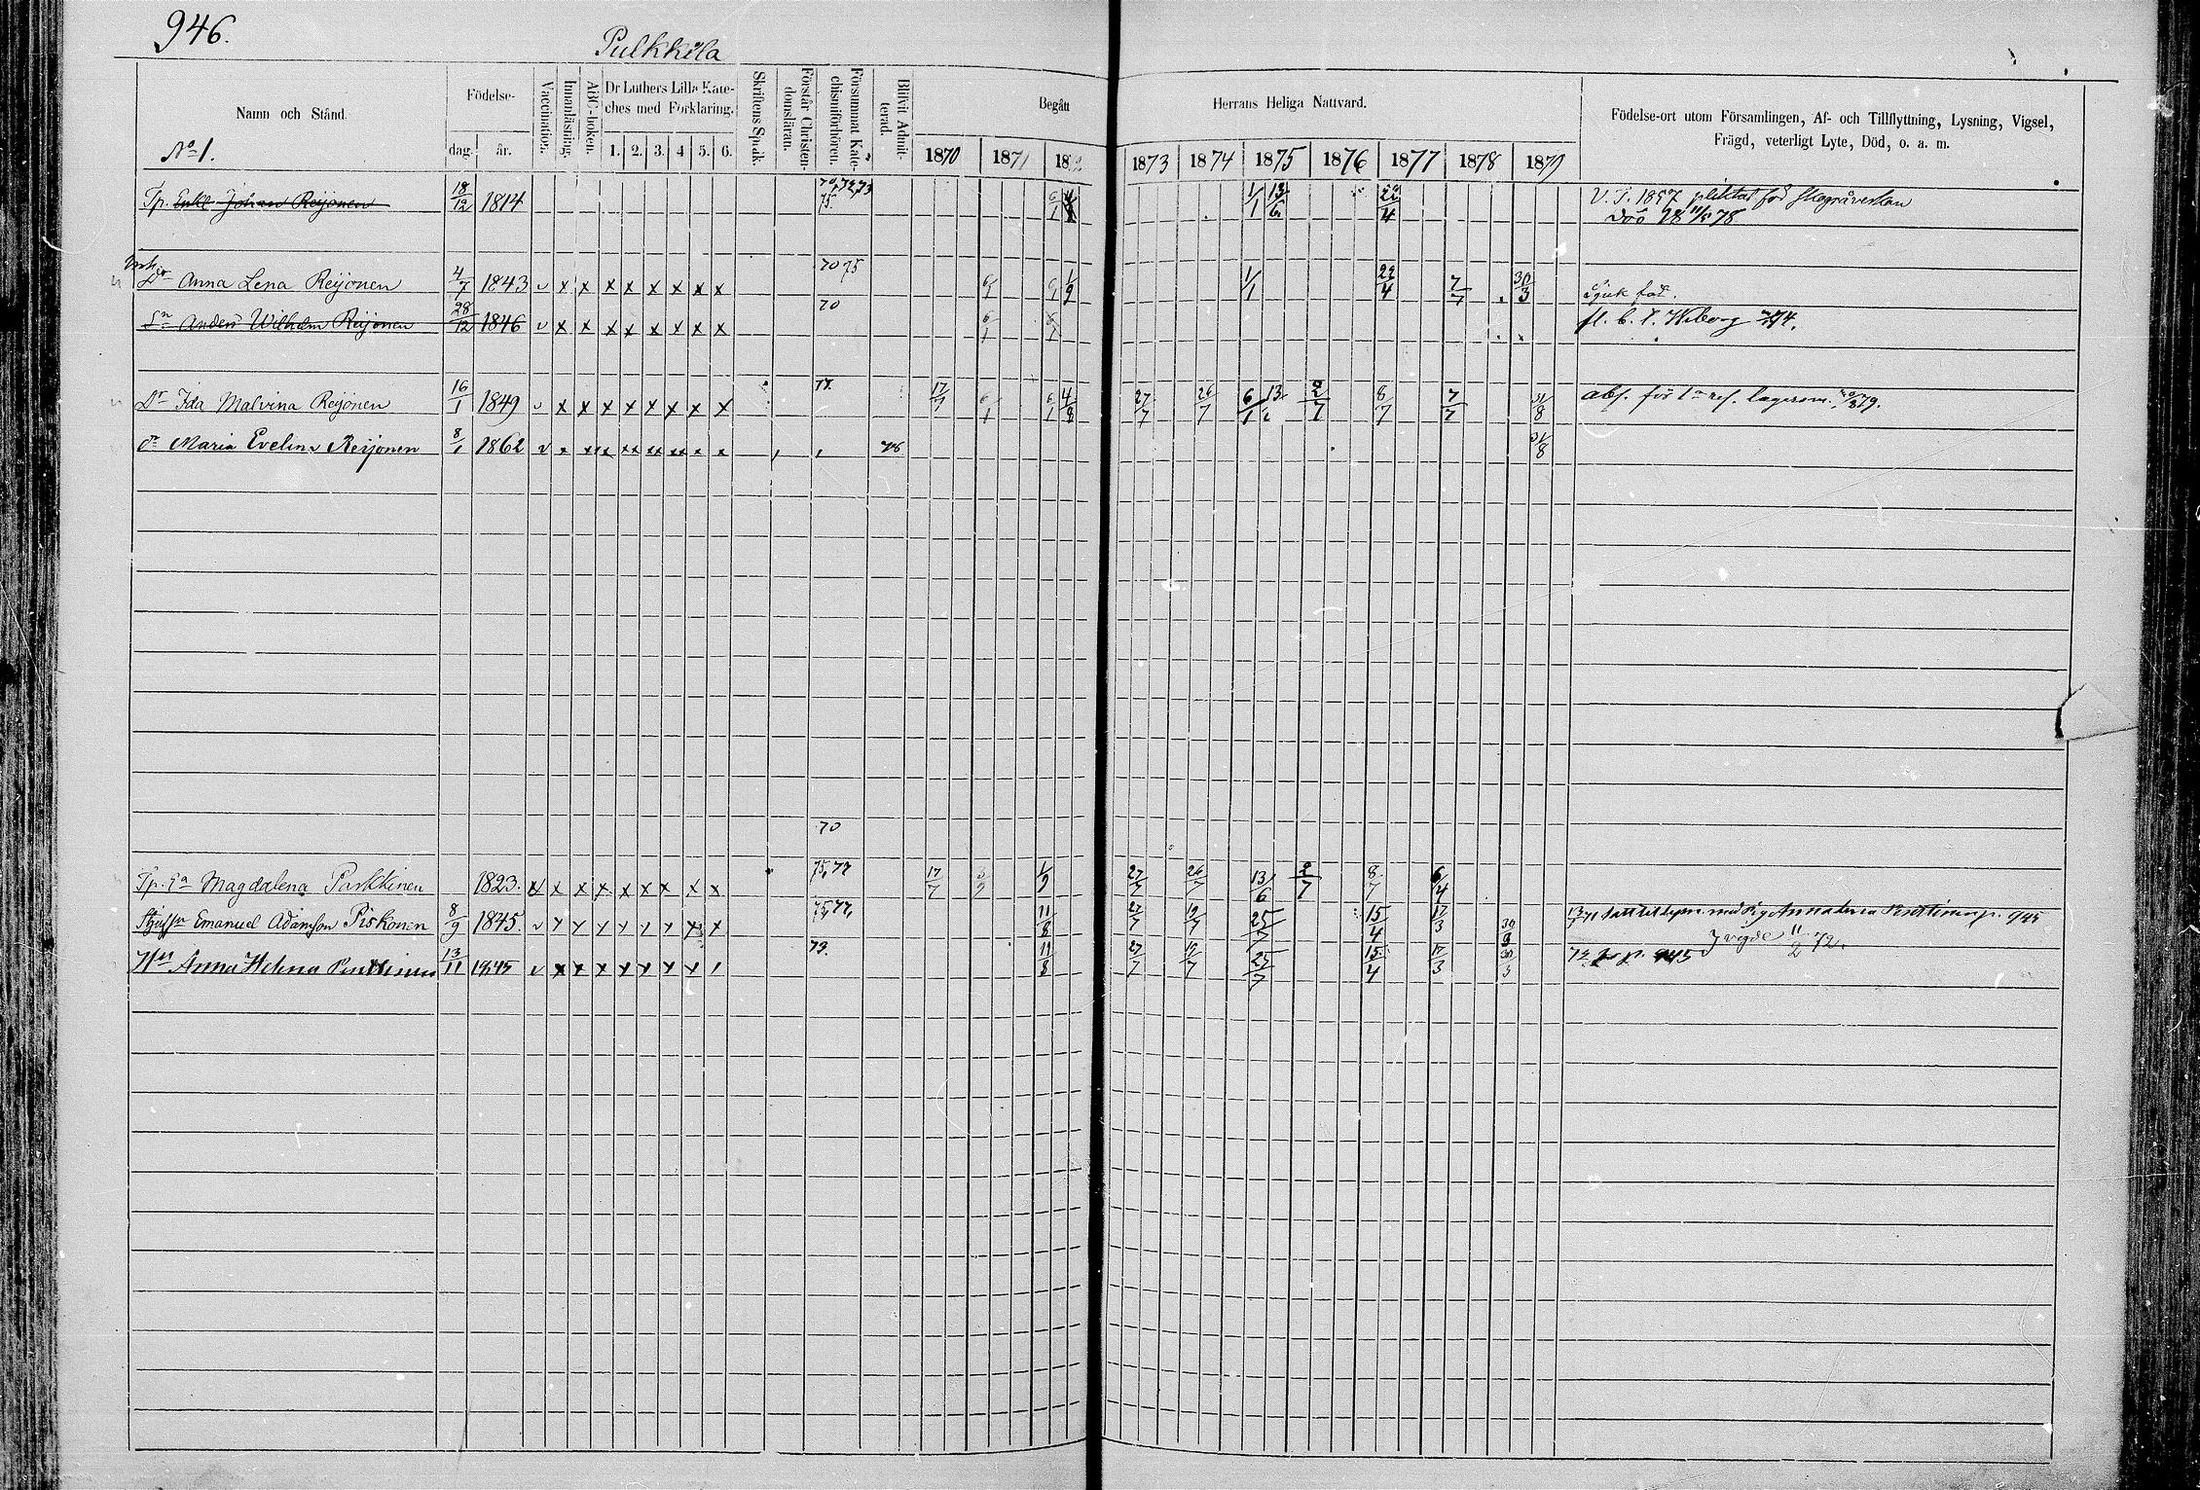 946.
Pulkkila
Namn och Stånd.
No 1.
Födelse-
dag.
år.
Vaccination.
Innanläsning.
ABC-boken.
Dr Luthers Lilla Kate-
ches med Förklaring.
1. 2. 3. 4 5. 6.
Skriftens Språk.
Förstår Christen-
domsläran.
Försummat Kate-
chismiförhören.
Blifvit Admit-
terad.
Begått
Herrans Heliga Nattvard.
1870 1871 1872 1873 1874 1875 1876 1877 1878 1879
Födelse-ort utom Församlingen, Af- och Tillflyttning, Lysning, Vigsel,
Frägd, veterligt Lyte, Död, o. a. m.
Tp. Enkl Johan Reijonen 18/12 1814 70, 72, 73 75. 6/1 1/1 13/6 22/4 V. T. 1857 pliktat för
Död 78
Dr Anna Lena Reijonen 4/7 1843 v x x x x x x x x 70 75 6/1 6/1 1/9 1/1 22/4 7/7 30/3 Sjuk
Sn Anders Wilhelm Reijonen 28/12 1846 v x x x x x x x x 70 6/1 6/1 fl. b. t. Wiborg 74.
Dr Ida Malvina Reijonen 16/1 1849 v x x x x x x x x 77. 17/7 6/1 6/1 4/8 27/7 26/7 6/1 13/6 2/7 8/7 7/7 31/8 abs. för 1a res. lägersm. 79.
Dr Maria Evelina Reijonen 8/1 1862 v 78 31/8
70
Tp. Ea Magdalena Parkkinen 1823. v x x x x x x x x 75, 77 17/7 1/9 27/7 26/7 13/6 2/7 8/7 6/4
Emanuel Adamsson Piskonen 8/9 1845. v 75, 77, 11/8 27/7 19/7 25/7 15/4 17/3 30/3 13/7 71 med Pig Anna Lena p. 945
Hu Anna Helena Penttinen 13/11 1845 v x x x x x x x 73. 11/8 27/7 19/7 25/7 15/4 17/3 30/3 72 fr p. 945 Vigde 11/2 72.